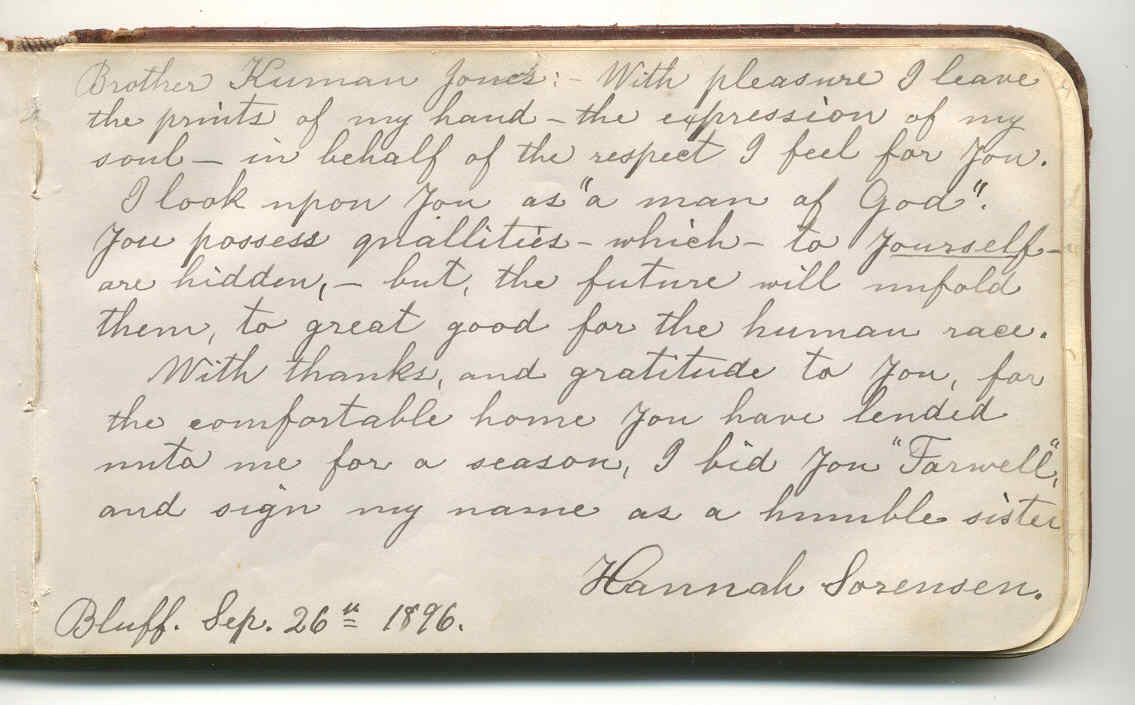 Brother Kuman Jones:- With pleasure I leave
the prints of my hand - the expression of my
soul - in behalf of the respect I feel for You.
I look upon You as "a man of God".
You possess quallities - which - to Yourself -
are hidden, - but, the future will unfold
them, to great good for the human race.
With thanks, and gratitude to You, for
the comfortable home You have lended
unto me for a season, I bid You "Farwell",
and sign my name as a humble sister
Hannah Sorensen.
Bluff. Sep. 26th 1896.